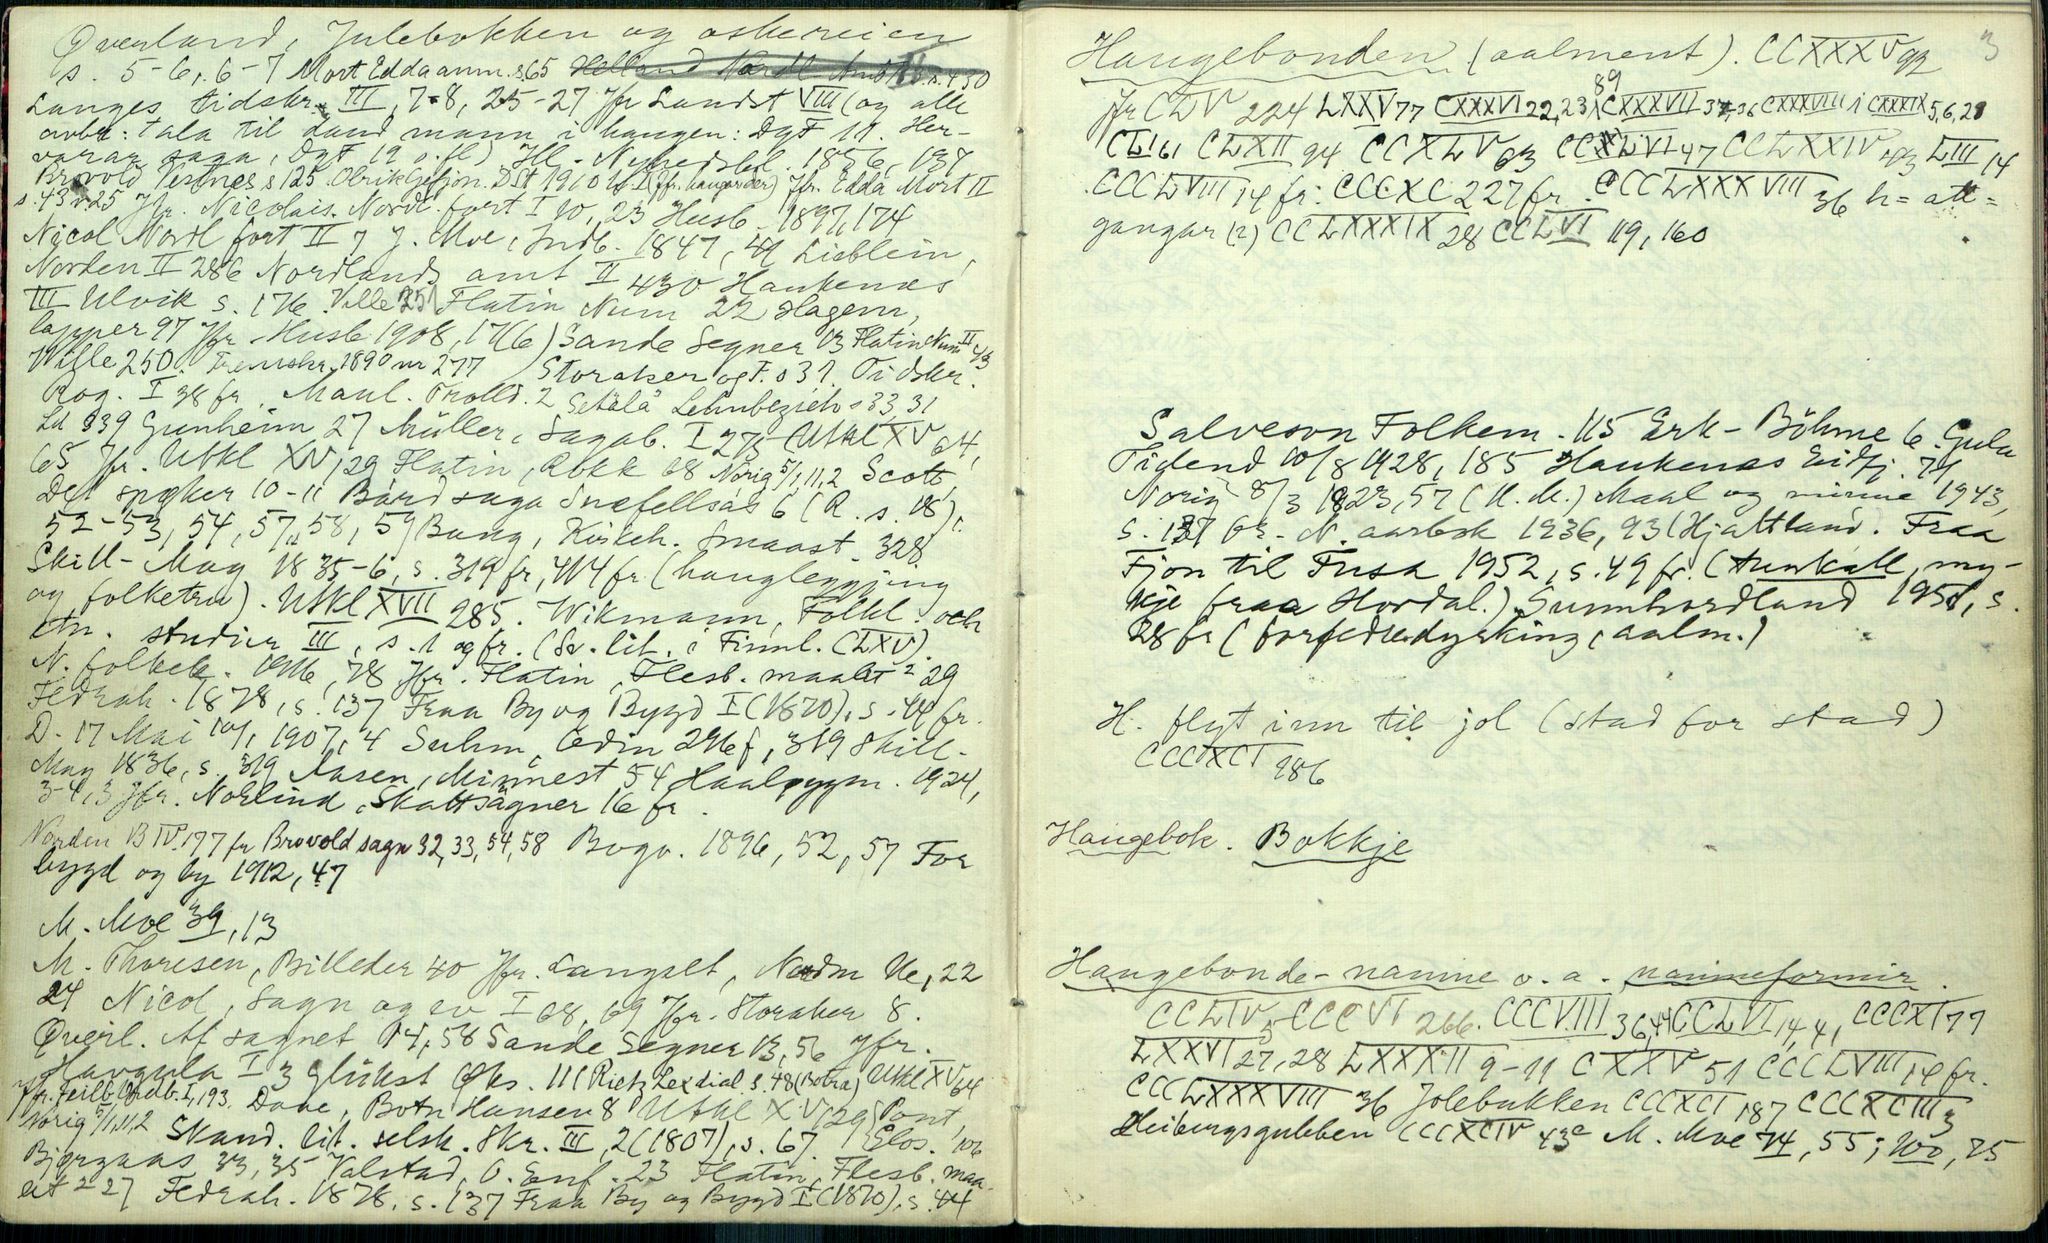 Överland, Julebokken og oskereien
s. 5-6, 6-7 Mort Edda anm. s. 65 Helland Nordl. Amt II s. 430
Langes tidskr. III, 7-8, 25-27 Jfr Landst VIII (og alle
ombr: tala til daud mann i haugen: DgF 11. Her-
varar saga, DgF 19 o. fl) Ill-Nyhedsbl. 1856, 137
Brovold Vestnes s 125 Olrik Gefjon. DSt 1910 Jfr. Edda Mort II
s. 43 25 Jfr. Nicolais. Nordl. fort I 10, 23 Husb. 1897, 174
Nicol Nordl fort II 7 J. Moe, Indb. 1847, 41 Lieblein,
Norden II 286 Nordlands amt II 430 Haukenæs
III Ulvik s. 176. Wille 251 Flatin Num 22 Hagem,
lapper 97 Jfr. Husb 1908, 17(6) Sande Segner 13 Flatin Num II 43
Wille 250. Fremskr. 1890 nr 277 Storaker og F. s 31. Tidskr.
Rog. I 38 fr. Maul. Trolld. 2 Setälä Lehnbezieh s 33, 31
Ld 339 Gunheim 27 Müller, Sagab. I 273 (Utkl XV 64,
65 Jfr. Utkl XV, 29 Flatin, 68 Norig 5/1, 11, 2 Scott,
Det spøker 10-11 Bárd saga Snæfellsás 6 (R. s. 18),
52-53, 54, 57, 58, 59 Bang, Kirkeh. Smaast. 328
Skill-Mag 1835-6, s. 319 fr, 414 fr. (haugleggjing
og folketru). Utkl XVII 285. Wikmann, Folkl. och
etn. studier III, s. 1 og fr. (Sv. lit. i Finnl. (LXV).
N. folkek. 1916, 78 Jfr. Flatin, Flesb. maalet 2 29
Fedrah. 1878, s. 137 Fraa By og Bygd I (1870), s. 44 fr.
D. 17 Mai 10/1 1907, 4 Suhm, Odin 246 f, 319 Skill-
Mag 1836, s. 319 Aasen, Minnest 54 Haaløygm. 1924,
3-4, 3 Jfr. Norlind, Skattsägner 16 fr.
Norden B IV. 177 fr Brovold sagn 32, 33, 54, 58 Bugv. 1896, 52, 57 For
bygd og by 1912, 47
M. Moe 39, 13
M. Thoresen, Billeder 40 Jfr. Langset, Nordm 22
24 Nicol, Sagn og ev I 68, 69 Jfr. Storaker 8.
Överl. Af sagnet 14, 58 Sande Segner 13, 56 Jfr.
Haugula I 3 Glükst 11 (Rietz Lex dial s. 48 (Botra) Utkl XV 64
Jfr. Feilb. Ordb. I, 193. Daae, Botn Hansen 8 Utkl XV, 29 Pont,
Norig 5/1, 11, 2 Skand. lit. selsk. Skr. III, 2 (1807), s. 67. Elos. 106
Bjørgaas 33, 35 Valstad, O. Enf. 23 Flatin, Flesb. maa-
let 2 27 Fedrah. 1878, s. 137 Fraa By og Bygd I (1870), s. 44
3
Haugebonden (aalment). CCXXXV 92
89
Jfr CLV 224 LXXV 77 CXXXVI 22, 23, CXXXVII 37, 36 CXXXVIII 1 CXXXIX 5, 6, 21
CLI 61 CLXII 94 CCXLV 63 CCXLVI 47 CCLXXIV 103 LIII 14
CCCLVIII 14 fr: CCCXC 227 fr. CCCLXXXVIII 36 h = att=
gangar (?) CCLXXXIX 28 CCLVI 119, 160
Salveson Folkem. 115 Erk-Böhme 6. Gula
Tidend 10/8 1928, 185 Haukenæs Eidfj. 71
Norig 8/3 1923, 57 (H. M.) Maal og minne 1943,
s. 137 fr. N. aarbok 1936, 93 (Hjaltland. Fraa
Fjon til Fusa 1952, s. 49 fr. (tunkall, my-
kje fraa Hordal.) Sunnhordland 1951, s.
28 fr (forfedredyrking, aalm.)
H. flyt inn til jol (stad for stad)
CCCXCI 186
Haugebok. Bokkje
Haugebonde-namne o. a. namneformir.
CCLIV 5 CCCVI 266. CCCVIII 36, 44 CCLVI, 14, 4, CCCXI 77
LXXVI 27, 28 LXXXII 9-11 CXXV 51 CCCLVIII 14 fr.
CCCLXXXVIII 36 Jolebukken CCCXCI 187 CCCXCIII 3
Heibergsgubben CCCXCIV 43c M. Moe 74, 55; 100, 75